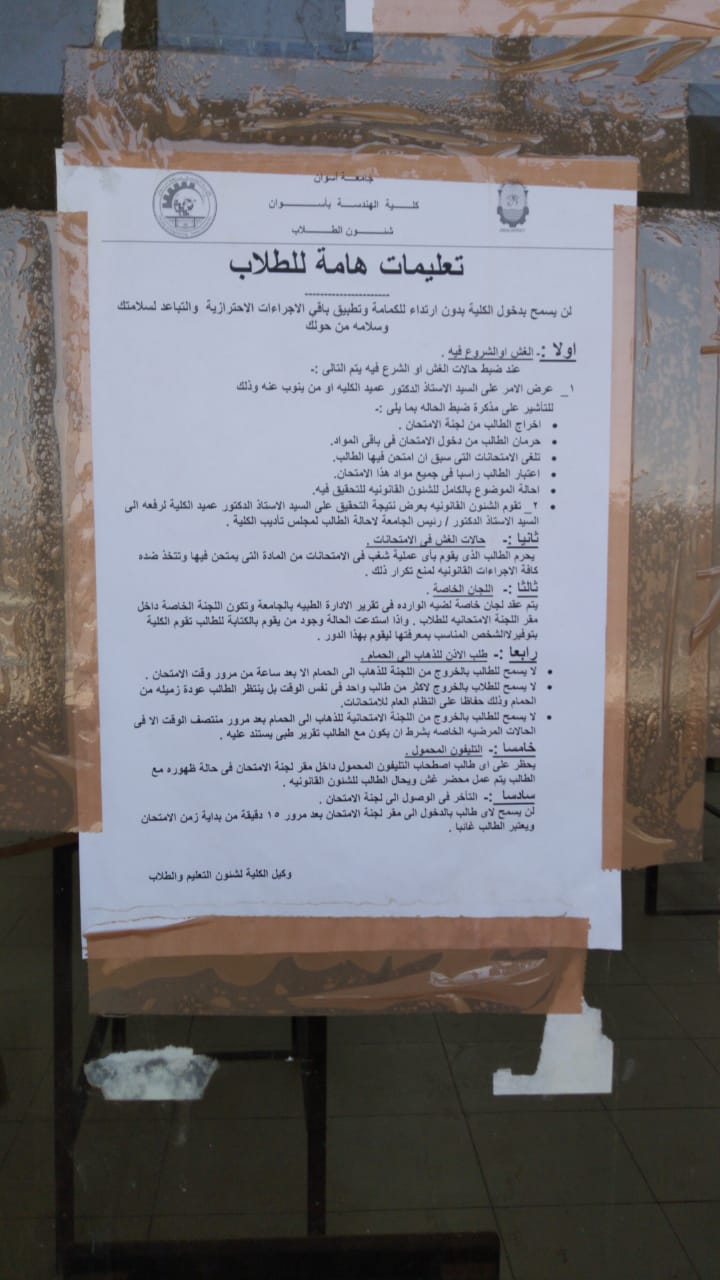 جامعة أسوان
كلية الهندسة بأسوان
شئون الطلاب
تعليمات هامة للطلاب
لن يسمح بدخول الكلية بدون ارتداء للكمامة وتطبيق باقي الاجراءات الاحترازية والتباعد لسلامتك
وسلامه من حولك
اولا :- الغش اوالشروع فيه .
عند ضبط حالات الغش او الشرع فيه يتم التالى :-
١_ عرض الامر على السيد الاستاذ الدكتور عميد الكليه او من ينوب عنه وذلك
للتأشير على مذكرة ضبط الحاله بما يلى :-
• اخراج الطالب من لجنة الامتحان .
• حرمان الطالب من دخول الامتحان فى باقى المواد.
• تلغى الامتحانات التى سبق ان امتحن فيها الطالب.
• اعتبار الطالب راسبا فى جميع مواد هذا الامتحان.
• احالة الموضوع بالكامل للشئون القانونيه للتحقيق فيه.
• ٢_ تقوم الشئون القانونيه بعرض نتيجة التحقيق على السيد الاستاذ الدكتور عميد الكلية لرفعه الى
السيد الاستاذ الدكتور / رئيس الجامعة لاحالة الطالب لمجلس تأديب الكلية .
ثانيا :- حالات الغش فى الامتحانات .
يحرم الطالب الذى يقوم بأى عملية شغب فى الامتحانات من المادة التى يمتحن فيها وتتخذ ضده
كافة الاجراءات القانونيه لمنع تكرار ذلك .
ثالثا :- اللجان الخاصة .
يتم عقد لجان خاصة لضيه الوارده فى تقرير الادارة الطبيه بالجامعة وتكون اللجنة الخاصة داخل
مقر اللجنة الامتحانيه للطلاب . واذا استدعت الحالة وجود من يقوم بالكتابة للطالب تقوم الكلية
بتوفيرلاالشخص المناسب بمعرفتها ليقوم بهذا الدور .
رابعا :- طلب الاذن للذهاب الى الحمام .
• لا يسمح للطالب بالخروج من اللجنة للذهاب الى الحمام الا بعد ساعة من مرور وقت الامتحان .
• لا يسمح للطلاب بالخروج لاكثر من طالب واحد فى نفس الوقت بل ينتظر الطالب عودة زميله من
الحمام وذلك حفاظا على النظام العام للامتحانات.
• لا يسمح للطالب بالخروج من اللجنة الامتحانية للذهاب الى الحمام بعد مرور منتصف الوقت الا فى
الحالات المرضيه الخاصه بشرط ان يكون مع الطالب تقرير طبى يستند عليه .
خامسا :- التليفون المحمول .
يحظر على اى طالب اصطحاب التليفون المحمول داخل مقر لجنة الامتحان فى حالة ظهوره مع
الطالب يتم عمل محضر غش ويحال الطالب للشئون القانونيه .
سادسا :- التأخر فى الوصول الى لجنة الامتحان .
لن يسمح لاى طالب بالدخول الى مقر لجنة الامتحان بعد مرور ١٥ دقيقة من بداية زمن الامتحان
ويعتبر الطالب غائبا .
وكيل الكلية لشئون التعليم والطلاب